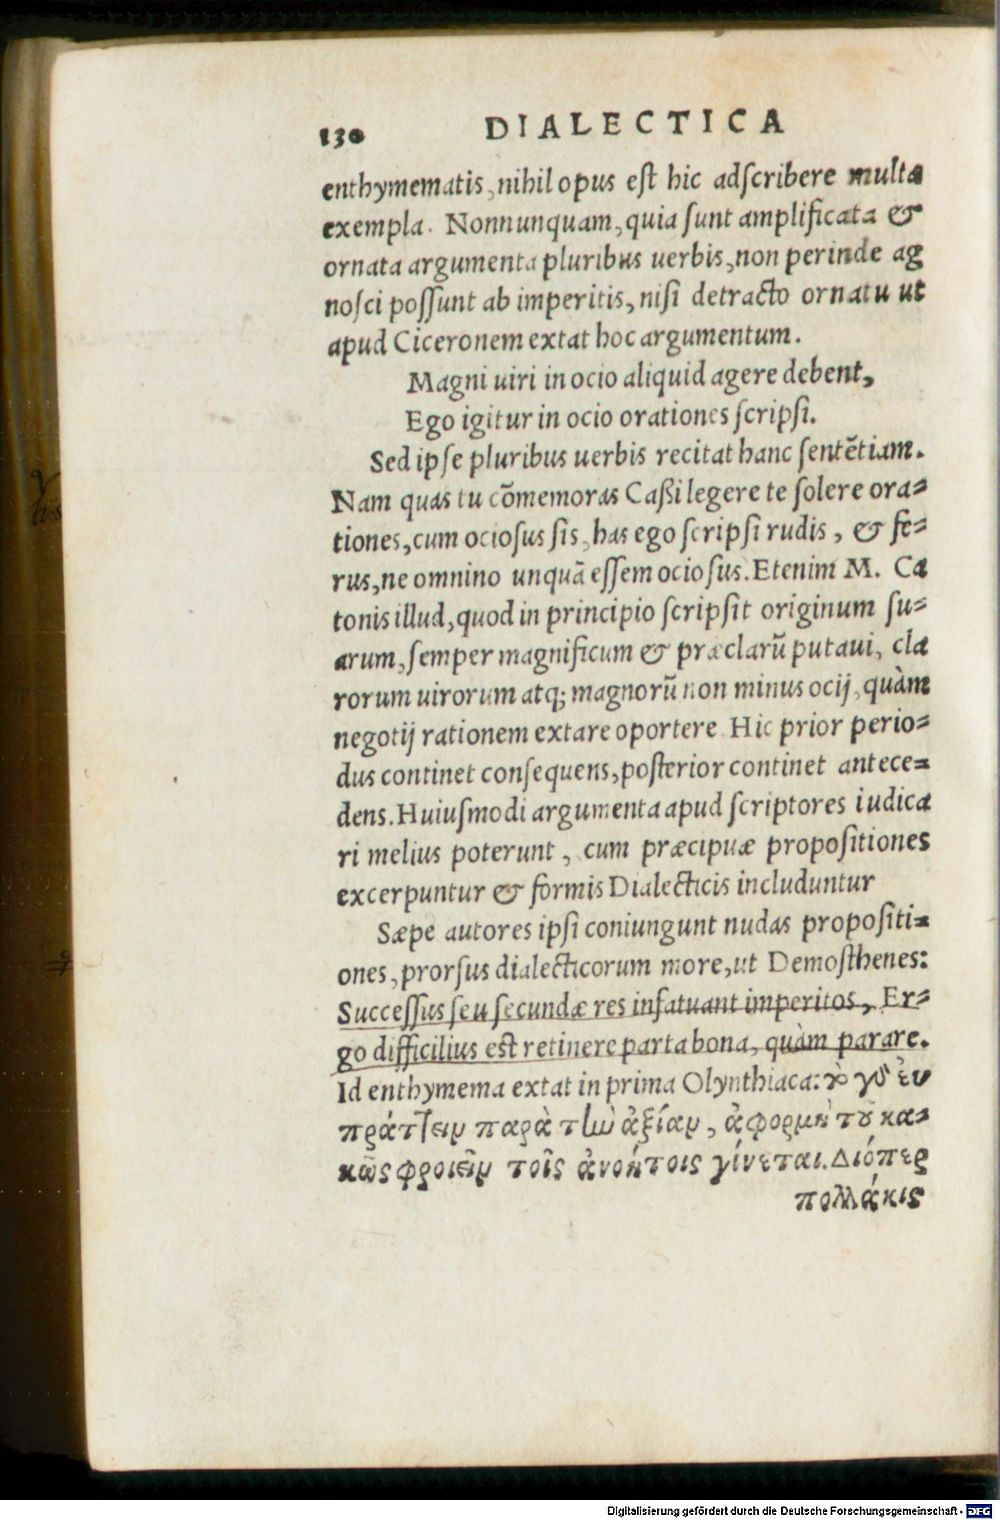 130 DIALECTICA
enthymematis, nihil opus est hic adscribere multa
exempla. Nonnunquam, quia sunt amplificata &
ornata argumenta pluribus uerbis, non perinde ag
nosci possunt ab imperitis, nisi detracto ornatu ut
apud Ciceronem extat hoc argumentum.
Magni uiri in ocio aliquid agere debent,
Ego igitur in ocio orationes scripsi.
Sed ipse pluribus uerbis recitat hanc sentẽtiam.
Nam quas tu cõmemoras Caßi legere te solere ora=
tiones, cum ociosus sis, has ego scripsi rudis, & fe=
rus, ne omnino unquã essem ociosus. Etenim M. Ca
tonis illud, quod in principio scripsit originum su=
arum, semper magnificum & præclarũ putaui, cla
rorum uirorum atq; magnorũ non minus ocij, quàm
negotij rationem extare oportere Hic prior perio=
dus continet consequens, posterior continet antece=
dens. Huiusmodi argumenta apud scriptores iudica
ri melius poterunt, cum præcipuæ propositiones
excerpuntur & formis Dialecticis includuntur
Sæpe autores ipsi coniungunt nudas propositi=
ones, prorsus dialecticorum more, ut Demosthenes:
Successus seu secundæ res infatuant imperitos, Er=
go difficilius est retinere parta bona, quàm parare.
Id enthymema extat in prima Olynthiaca: τὸ γὸ ἐυ
πράττειν παρὰ τὼ ἀξίαν, ἀφορμὴ τȣ͂ κα=
κῶς φρονεῖν τοῖς ἀνοήτοις γίνεται. Διόπερ
πολλάκις
Digitalisierung gefördert durch die Deutsche Forschungsgemeinschaft - DFG